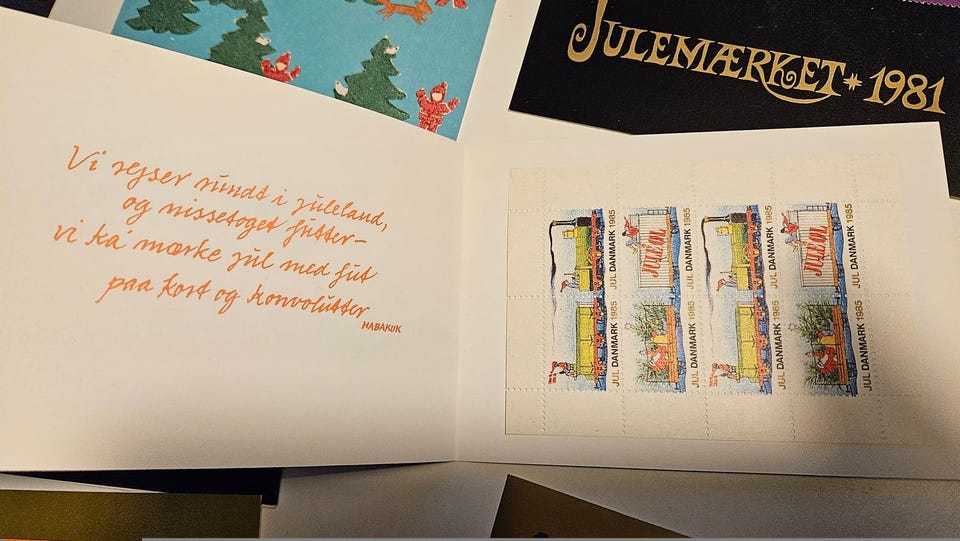 JULEMÆRKET * 1981
Vi rejser rundt i juleland,
og nissetoget futter –
vi ka' mærke jul med fut
paa kort og konvolutter
HABAKUK
JUL DANMARK 1985
JUL DANMARK 1985
JUL DANMARK 1985
JUL DANMARK 1985
JUL DANMARK 1985
JUL DANMARK 1985
JUL DANMARK 1985
JUL DANMARK 1985
JULEØL
JULEØL